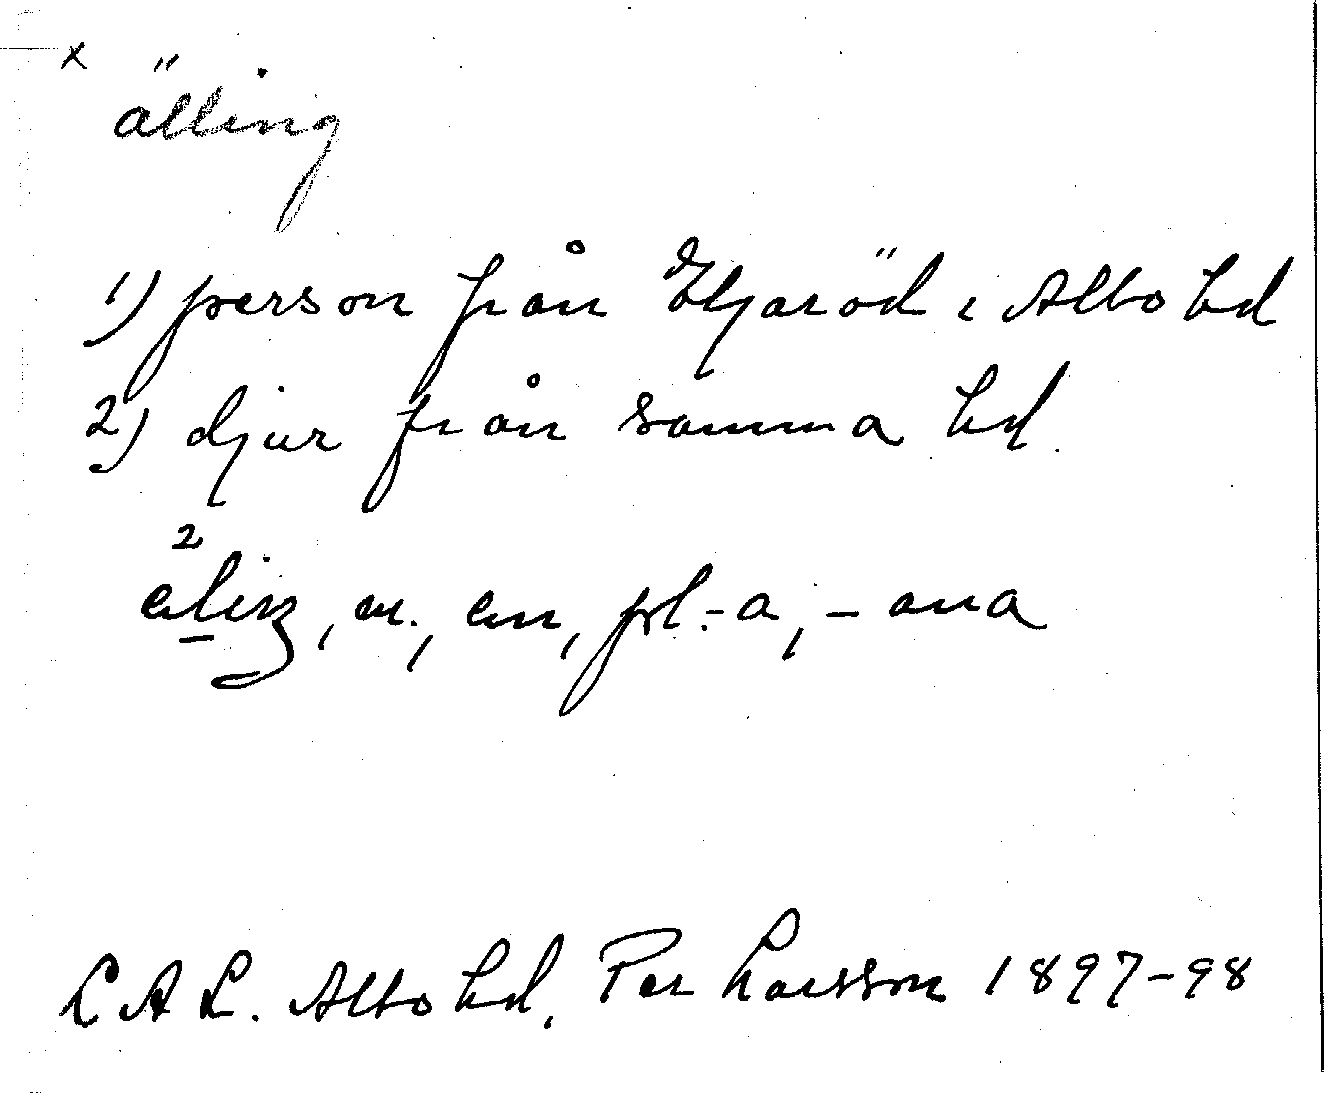 x
älling
1) person från Eljaröd i Albo hd
2) djur från samma hd.
²äliŋ, m., en, pl. -a, -ana
LAL. Albo hd, Per Larsson 1897-98